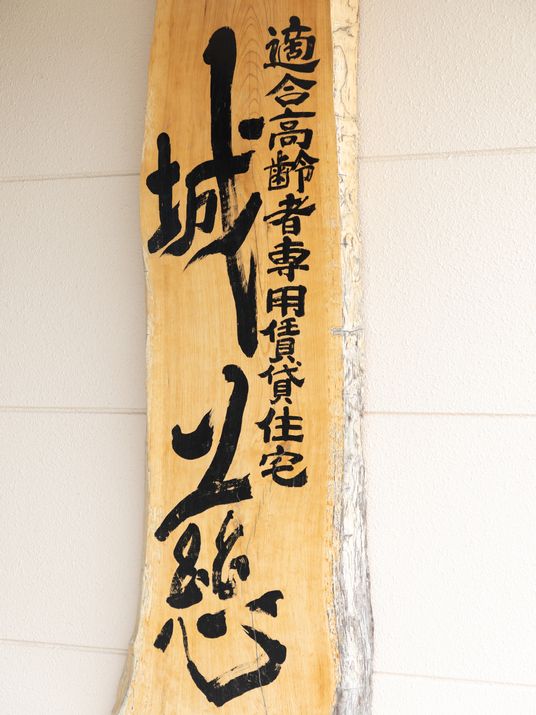 適合高齢者専用賃貸住宅
城之慈